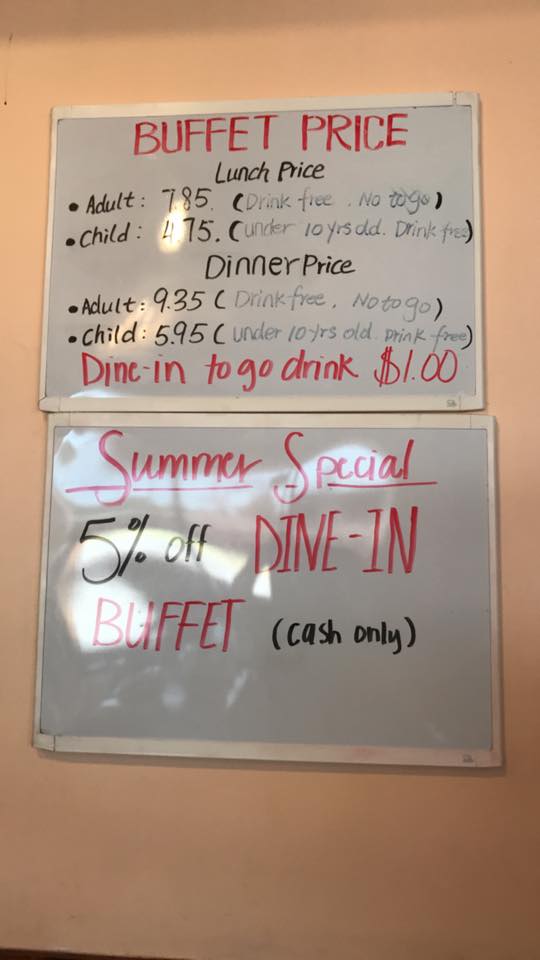 BUFFET PRICE
Lunch Price
• Adult: 7.85. (Drink free. No to go)
• Child: 4.75. (under 10 yrs old. Drink free)
Dinner Price
• Adult: 9.35 (Drink free. No to go)
• Child: 5.95 (under 10 yrs old. Drink free)
Dine-in to go drink $1.00
Summer Special
5% off DINE-IN
BUFFET (cash only)